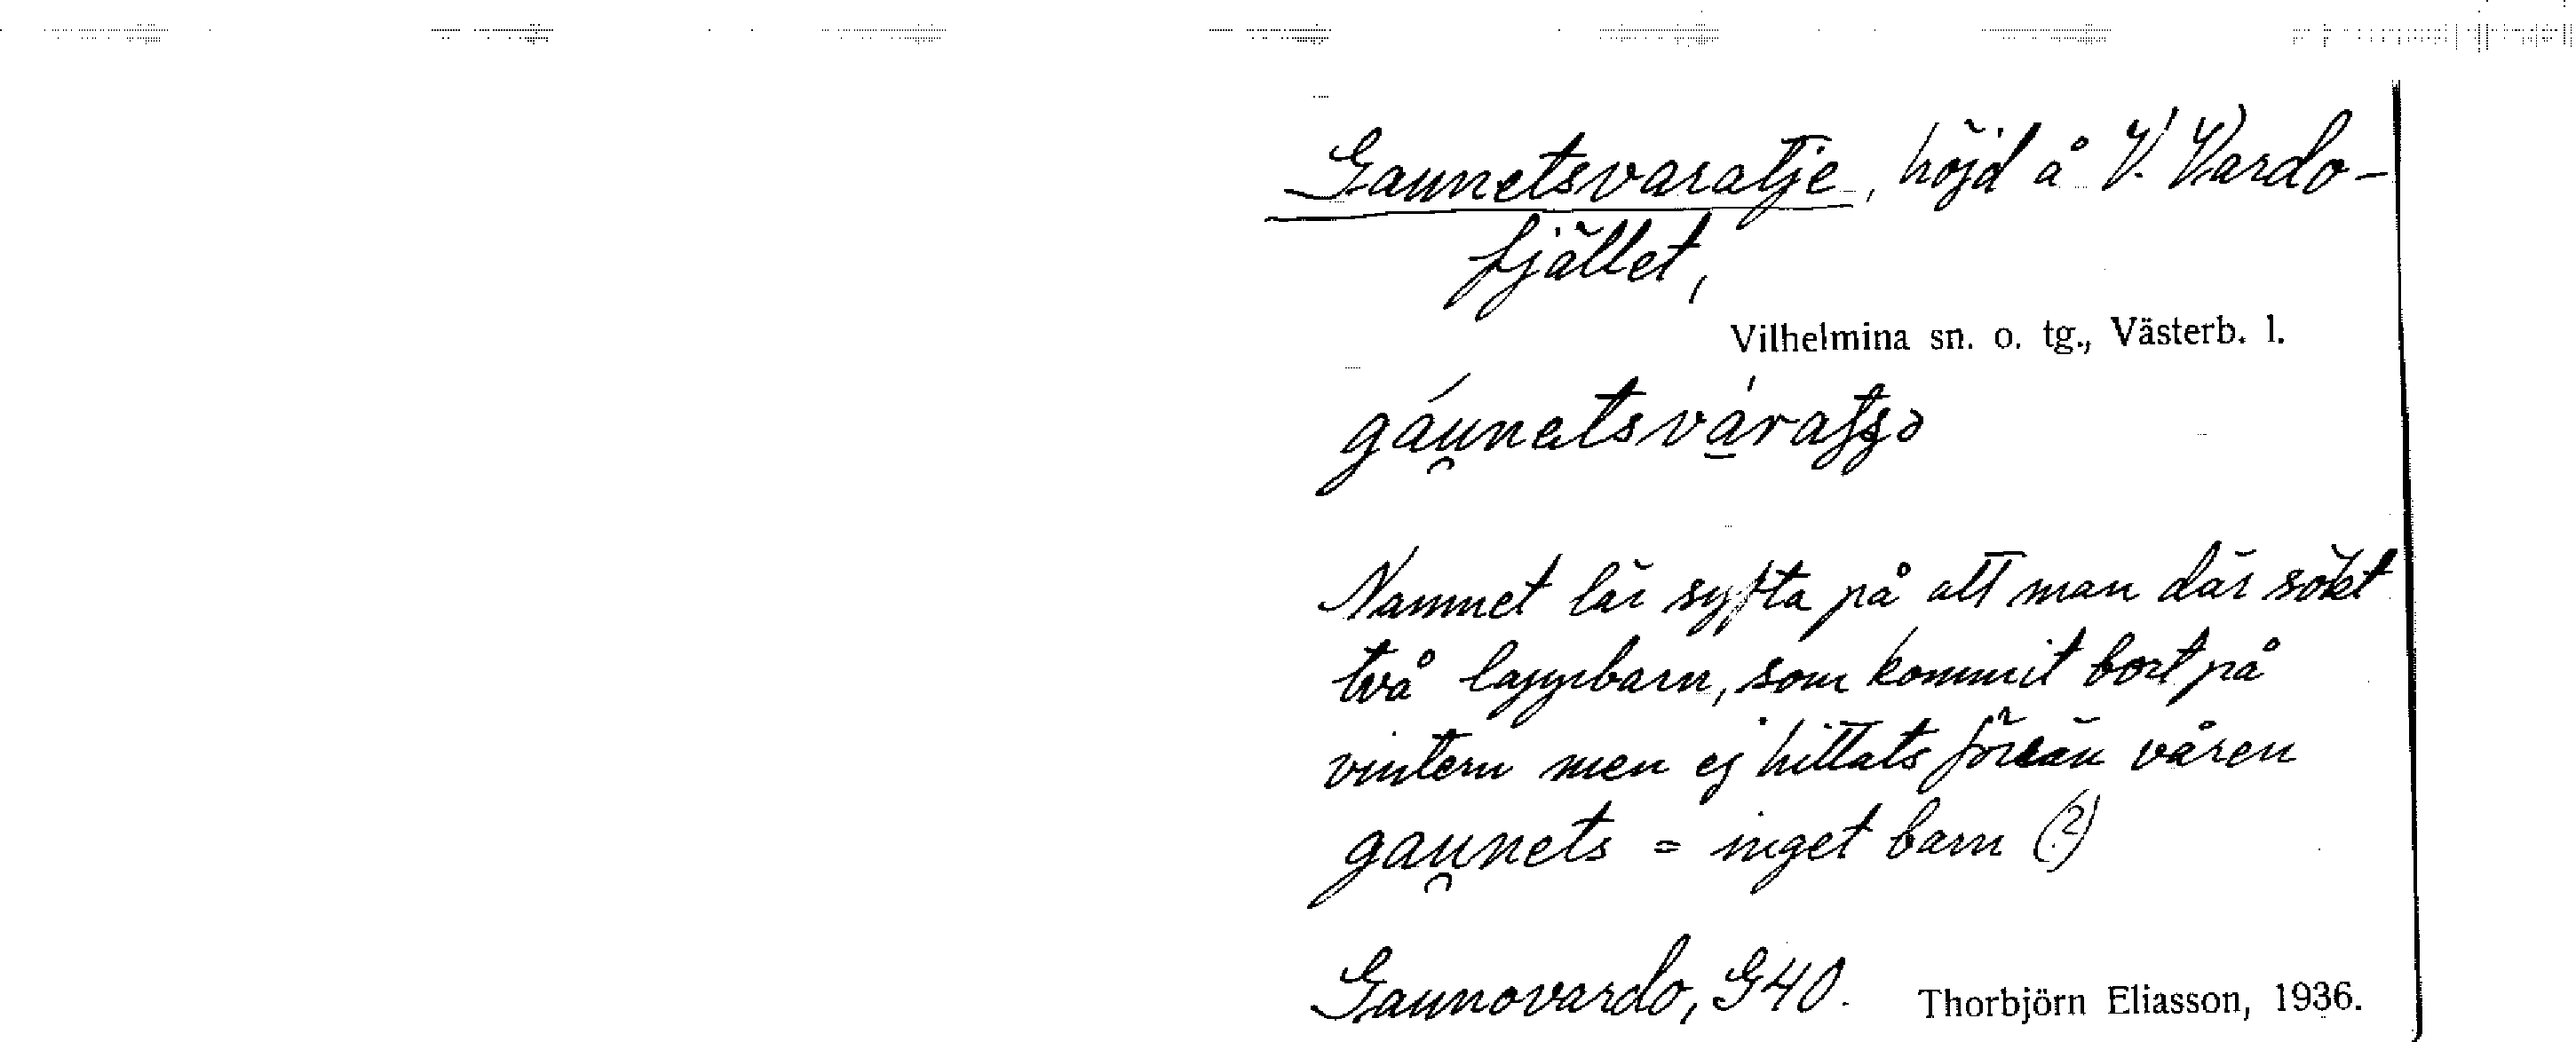 Gaunetsvaratje, höjd å V. Vardo-
fjället,
Vilhelmina sn. o. tg., Västerb. l.
gáu̯netsvā́ratjə
Namnet lär syfta på att man där sökt
två lappbarn, som kommit bort på
vintern men ej hittats förrän våren
gau̯nets = inget barn (?)
Gaunovardo, G40.
Thorbjörn Eliasson, 1936.